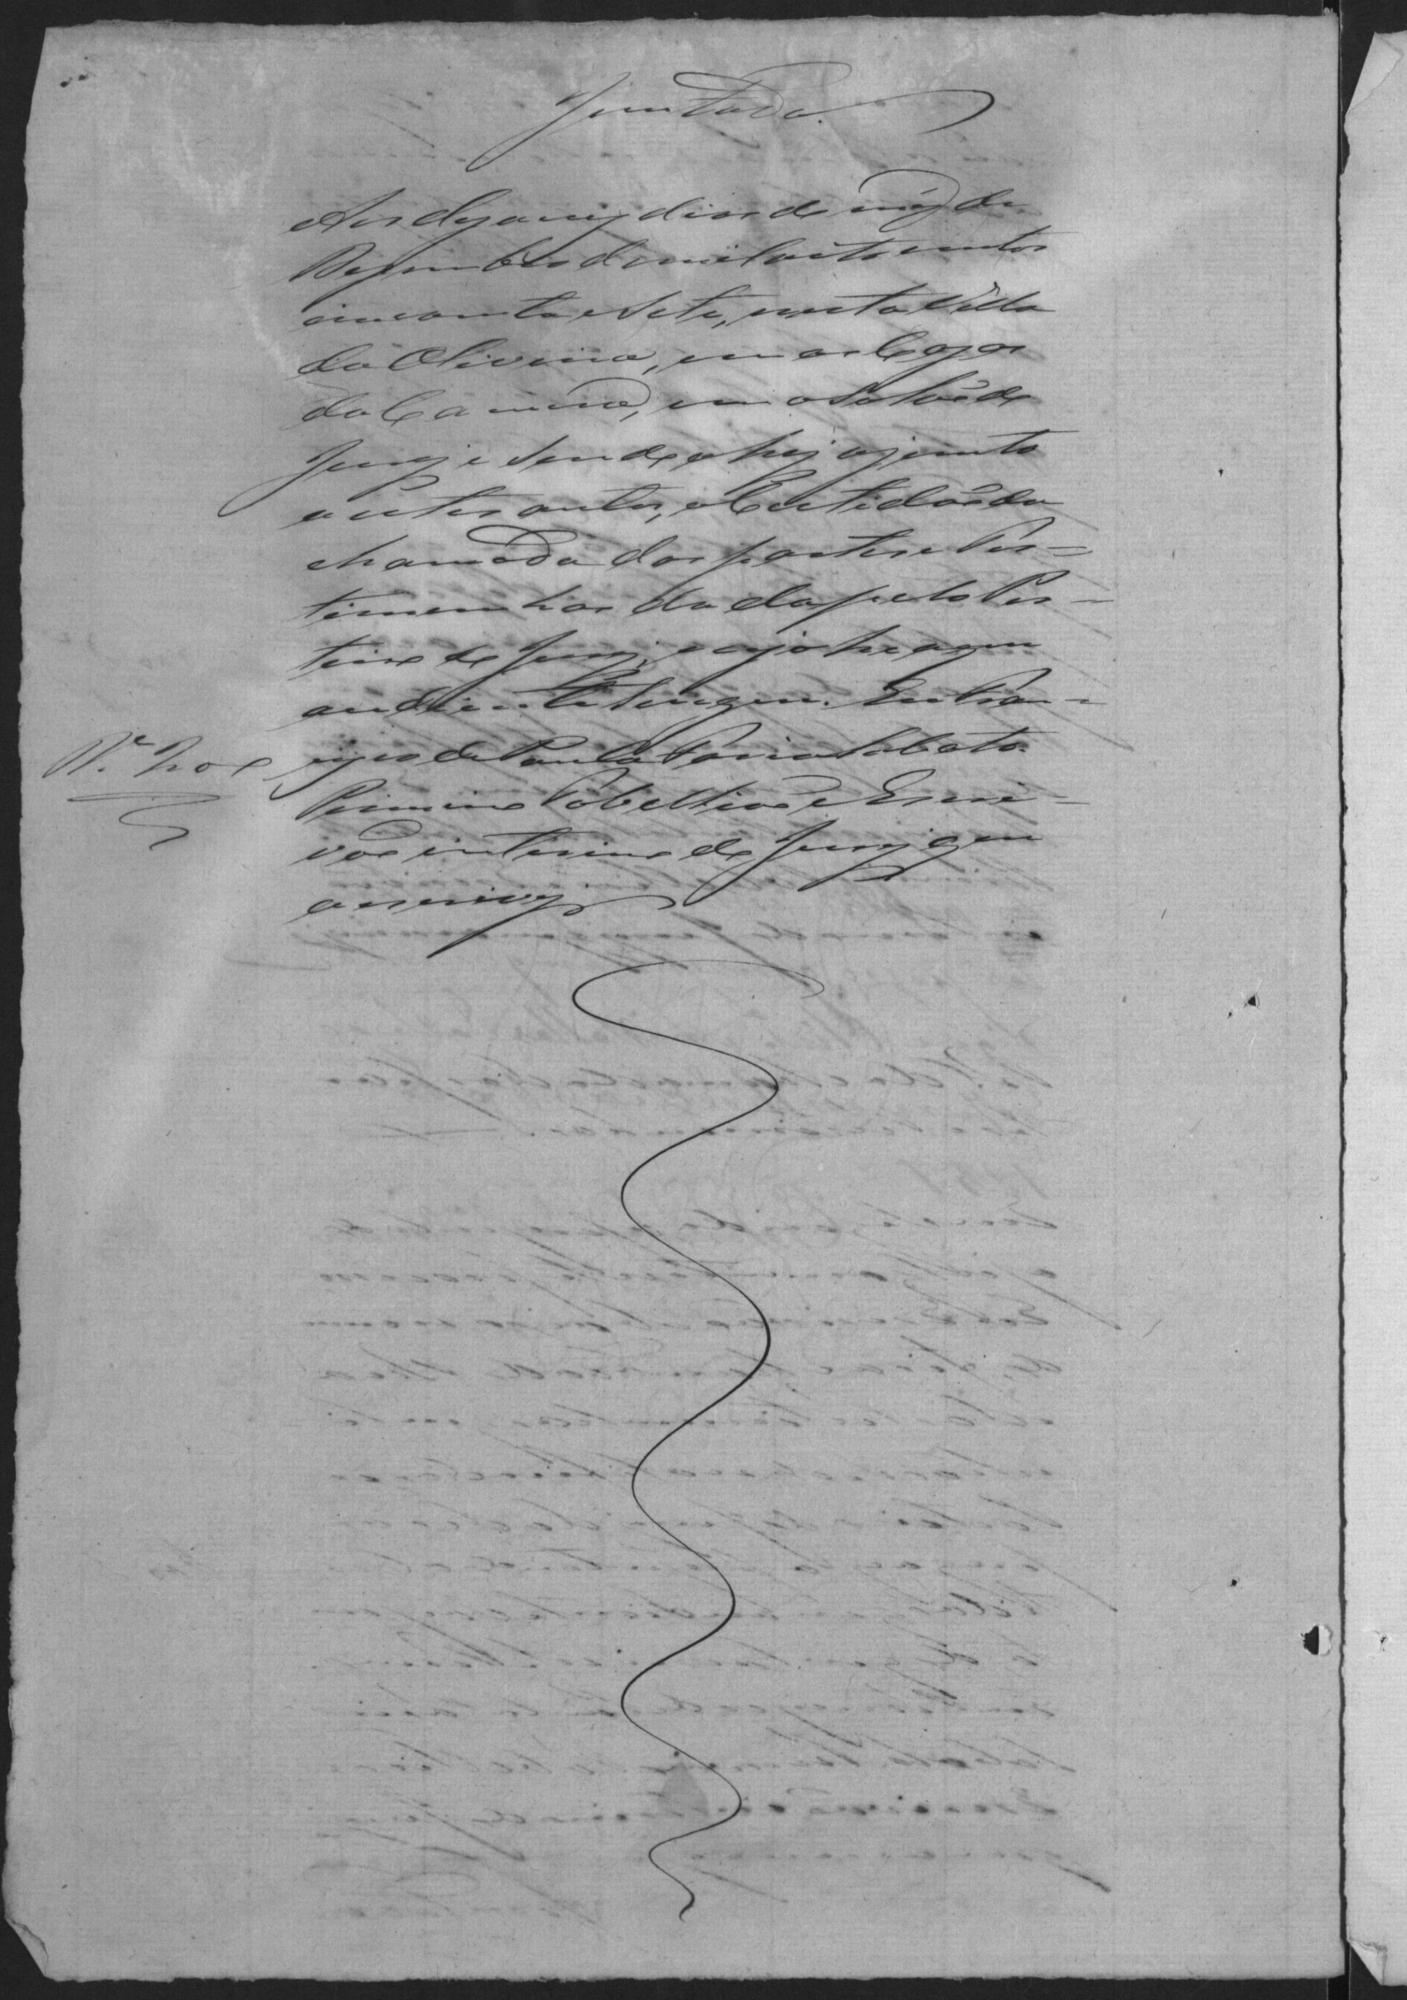 Juntada.
Aos dezaseis dias do mez de
Dezembro de mil oito centos
cincoenta e sete, nesta Villa
da Oliveira, em as Cazas
da Camara, em a Sala do
Jury e sendo ahi ajunto
a estes autos, a Certidão da
chamada das partes e Tes=
timunhas dada pelo Por=
teiro do Jury, e cujo he a que
ao diante segue. Eu Fran=
cisco de Paula Faria Lobato
Primeiro Tabellião e Escri=
vão interino do Jury que
o escrevy